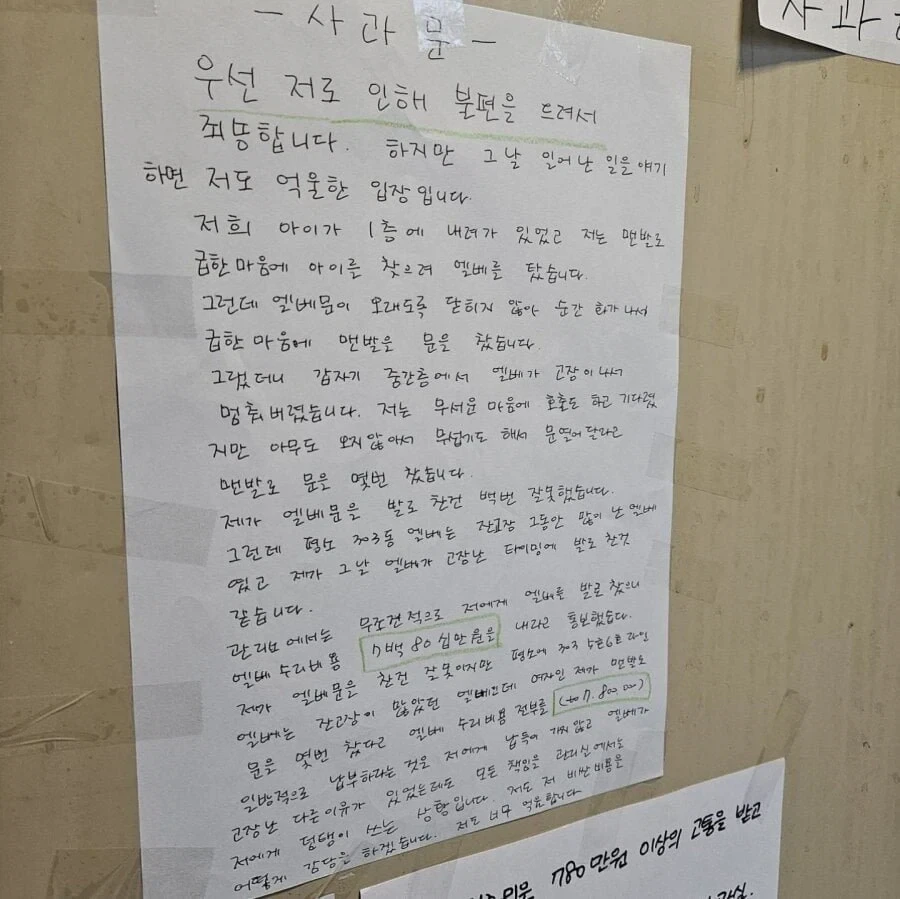 - 사 과 문 -
우선 저로 인해 불편을 드려서
죄송합니다. 하지만 그날 일어난 일을 얘기
하면 저도 억울한 입장입니다.
저희 아이가 1층에 내려가 있었고 저는 맨발로
급한 마음에 아이를 찾으려 엘베를 탔습니다.
그런데 엘베문이 오래도록 닫히지 않아 순간 화가 나서
급한 마음에 맨발을 문을 찼습니다.
그랬더니 갑자기 중간층에서 엘베가 고장이 나서
멈춰버렸습니다. 저는 무서운 마음에 호출도 하고 기다렸
지만 아무도 오지않아서 무섭기도 해서 문열어 달라고
맨발로 문을 몇번 찼습니다.
제가 엘베문을 발로 찬건 백번 잘못했습니다.
그런데 평소 303동 엘베는 잔고장 그동안 많이 난 엘베
였고 제가 그날 엘베가 고장난 타이밍에 발로 찬것
같습니다.
관리소에서는 무조건적으로 저에게 엘베를 발로 찼으니
엘베 수리비용 7백 80 십만원을 내라고 통보했습니다.
제가 엘베문을 찬건 잘못이지만 평소에 303 5호6호 라인
엘베는 잔고장이 많았던 엘베인데 여자인 제가 맨발로
문을 몇번 찼다고 엘베 수리비용 전부를 (7.800.000)
일방적으로 납부하라는 것은 저에게 납득이 가지 않고 엘베가
고장난 다른이유가 있었는데도 모든 책임을 관리실에서는
저에게 덤탱이 쓰는 상황입니다. 저도 저 비싼 비용을
어떻게 감당을 하겠습니다. 저도 너무 억울합니다
사과
780만원 이상의 고통을 받고